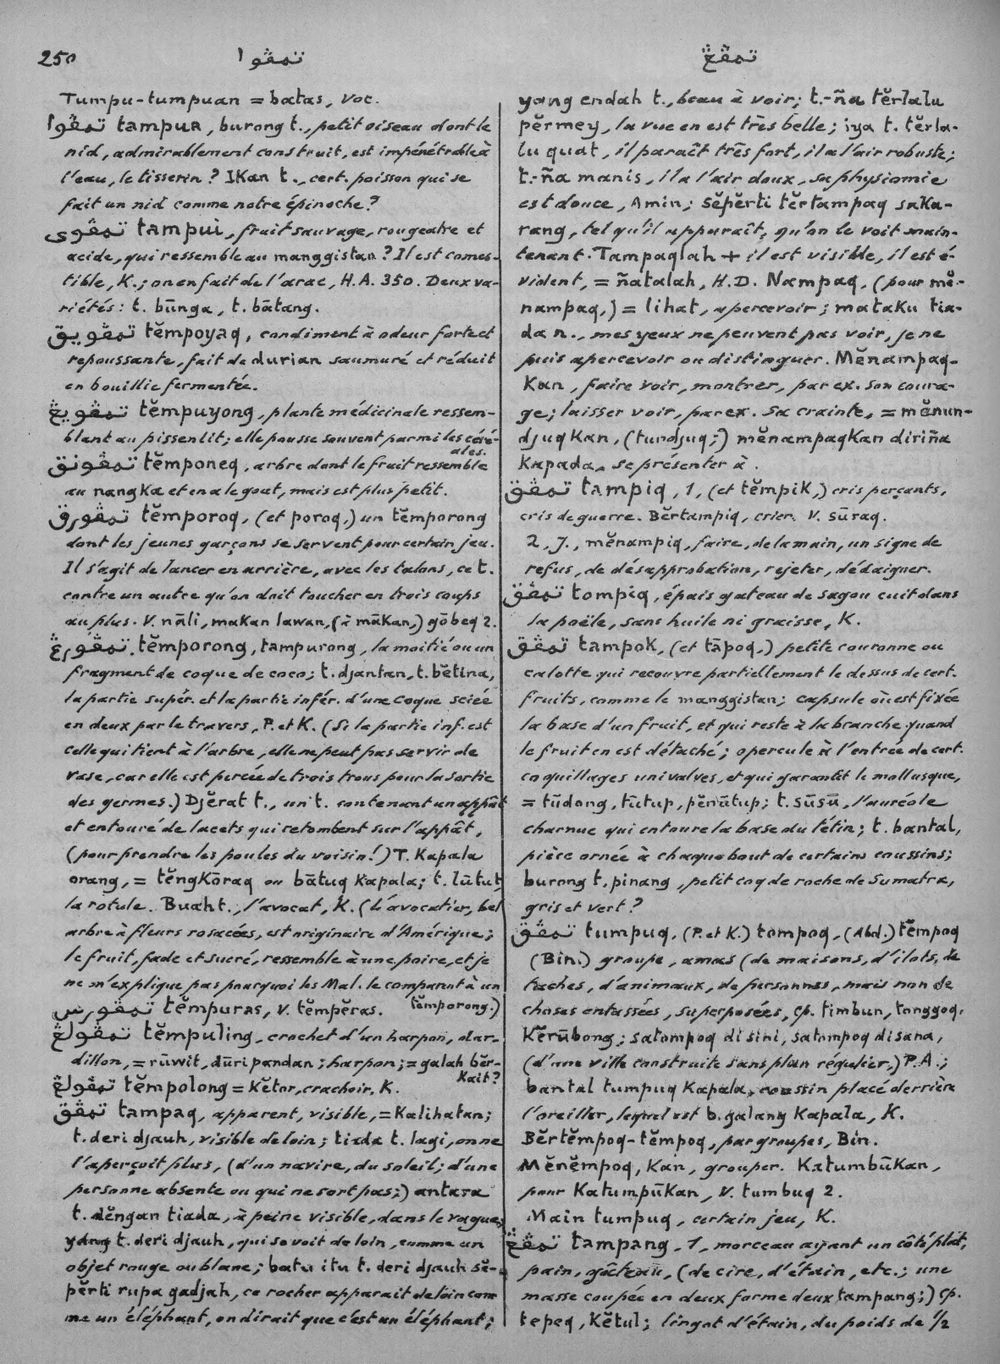 250
تمڤوا
تمڤڠ
Tumpu-tumpuan = batas, Voc.
تمڤوا tampua, burong t., petit oiseau dont le
nid, admirablement construit, est impénétrable à
l'eau, le tisserin? Ikan t., cert. poisson qui se
fait un nid comme notre épinoche?
تمڤوى tampui, fruit sauvage, rougeatre et
acide, qui ressemble au manggistan? Il est comes-
tible, K.; on en fait de l'arac, H.A. 350. Deux va-
riétés: t. būnga, t. bātang.
تمڤويق tĕmpoyaq, condiment à odeur forte et
repoussante, fait de durian saumuré et réduit
en bouillie fermentée.
تمڤويڠ tĕmpuyong, plante médicinale ressem-
blant au pissenlit; elle pousse souvent parmi les céré-
ales.
تمڤونق tĕmponeq, arbre dont le fruit ressemble
au nangka et en a le gout, mais est plus petit.
تمڤورق tĕmporoq, (et poroq,) un tĕmporong
dont les jeunes garçons se servent pour certain jeu.
Il s'agit de lancer en arrière, avec les talons, ce t.
contre un autre qu'on doit toucher en trois coups
au plus. V. nāli, makan lawan, (à mākan,) gōbeq 2.
تمڤورڠ tĕmporong, tampurong, la moitié ou un
fragment de coque de coco; t. djantan, t. bĕtina,
la partie supér. et la partie infér. d'une coque sciée
en deux par le travers, P. et K. (Si la partie inf. est
celle qui tient à l'arbre, elle ne peut pas servir de
vase, car elle est percée de trois trous pour la sortie
des germes.) Djĕrat t., un t. contenant un appât
et entouré de lacets qui retombent sur l'appât,
(pour prendre les poules du voisin!) T. kapala
orang, = tĕngkōraq ou bātuq kapala; t. lūtut,
la rotule. Buah t., l'avocat, K. (L'avocatier, bel
arbre à fleurs rosacées, est originaire d'Amérique;
le fruit, fade et sucré, ressemble à une poire, et je
ne m'explique pas pourquoi les Mal. le comparent à un
tĕmporong.)
تمڤورس tĕmpuras, V. tĕmpĕras.
تمڤولڠ tĕmpuling, crochet d'un harpon, ar-
dillon, = rūwit, dūri pandan; harpon; = galah bĕr-
kait?
تمڤولڠ tĕmpolong = kĕtor, crachoir, K.
تمڤق tampaq, apparent, visible, = kalihatan;
t. deri djauh, visible de loin; tiada t. lagi, on ne
l'aperçoit plus, (d'un navire, du soleil; d'une
personne absente ou qui ne sort pas;) antara
t. dĕngan tiada, à peine visible, dans le vague;
yang t. deri djauh, qui se voit de loin, comme un
objet rouge ou blanc; batu itu t. deri djauh sĕ-
pĕrti rupa gadjah, ce rocher apparait de loin com
me un éléphant, on dirait que c'est un éléphant;
yang endah t., beau à voir; t.-ña tĕrlalu
pĕrmey, la vue en est très belle; iya t. tĕrla-
lu quat, il paraît très fort, il a l'air robuste;
t.-ña manis, il a l'air doux, sa physiomie
est douce, Amin; sĕpĕrti tĕrtampaq saka-
rang, tel qu'il apparaît, qu'on le voit main-
tenant. Tampaqlah + il est visible, il est é-
vident, = ñatalah, H.D. Nampaq, (pour mĕ-
nampaq,) = lihat, apercevoir; mataku tia-
da n., mes yeux ne peuvent pas voir, je ne
puis apercevoir ou distinguer. Mĕnampaq-
kan, faire voir, montrer, par ex. son coura-
ge; laisser voir, par ex. sa crainte, = mĕnun-
djuqkan, (tundjuq;) mĕnampaqkan diriña
kapada, se présenter à.
تمڤق tampiq, 1, (et tĕmpik,) cris perçants,
cris de guerre. Bĕrtampiq, crier. V. sūraq.
2, J., mĕnampiq, faire, de la main, un signe de
refus, de désapprobation, rejeter, dédaigner.
تمڤق tompiq, épais gateau de sagou cuit dans
la poële, sans huile ni graisse, K.
تمڤق tampok, (et tāpoq,) petite couronne ou
calotte qui recouvre partiellement le dessus de cert.
fruits, comme le manggistan; capsule où est fixée
la base d'un fruit, et qui reste à la branche quand
le fruit en est détaché; opercule à l'entrée de cert.
coquillages univalves, et qui garantit le mollusque,
= tūdong, tūtup, pĕnūtup; t. sūsū, l'auréole
charnue qui entoure la base du tétin; t. bantal,
pièce ornée à chaque bout de certains coussins;
burong t. pinang, petit coq de roche de Sumatra,
gris et vert?
تمڤق tumpuq, (P. et K.) tompoq, (Abd.) tĕmpoq
(Bin.) groupe, amas (de maisons, d'ilots, de
taches, d'animaux, de personnes, mais non de
choses entassées, superposées, cp. timbun, tonggoq,
kĕrūbong; satompoq di sini, satompoq di sana,
(d'une ville construite sans plan régulier,) P.A.;
bantal tumpuq kapala, coussin placé derrière
l'oreiller, lequel est b. galang kapala, K.
Bĕrtĕmpoq-tĕmpoq, par groupes, Bin.
Mĕnĕmpoq, kan, grouper. Katumbūkan,
pour katumpūkan, V. tumbuq 2.
Main tumpuq, certain jeu, K.
تمڤڠ tampang, 1, morceau ayant un côté plat,
pain, gâteau, (de cire, d'étain, etc.; une
masse coupée en deux forme deux tampang;) cp.
tepeq, kĕtul; lingot d'étain, du poids de ½